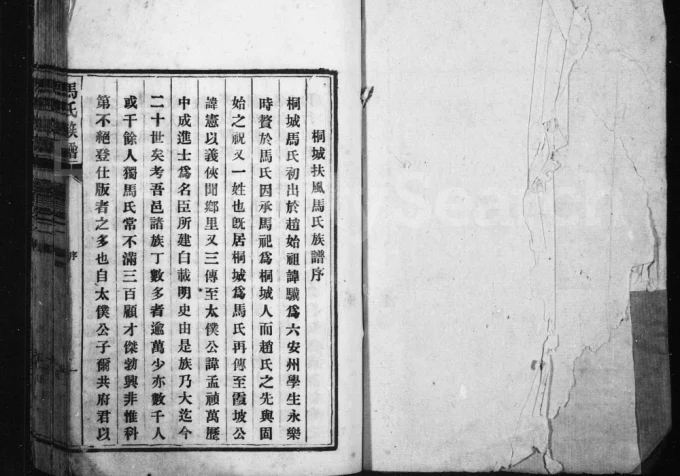 桐城扶風馬氏族譜序
桐城馬氏初出於趙始祖諱驥爲六安州學生永樂
時贅於馬氏因承馬祀爲桐城人而趙氏之先與固
始之祝又一姓也既居桐城爲馬氏再傳至霞坡公
諱憲以義俠聞鄉里又三傳至太僕公諱孟禎萬歷
中成進士爲名臣所建白載明史由是族乃大迄今
二十世矣考吾邑諸族丁數多者逾萬少亦數千人
或千餘人獨馬氏常不滿三百顧才傑勃興非惟科
第不絕登仕版者之多也自太僕公子爾共府君以
馬氏族譜
序
一